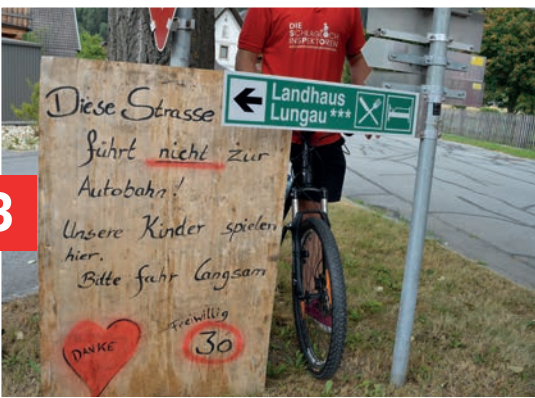 DIE
SCHLAGLOCH
INSPEKTOREN
Landhaus
Lungau ***
Diese Strasse
führt nicht zur
Autobahn!
Unsere Kinder spielen
hier.
Bitte fahr langsam
Freiwillig
30
DANKE
3